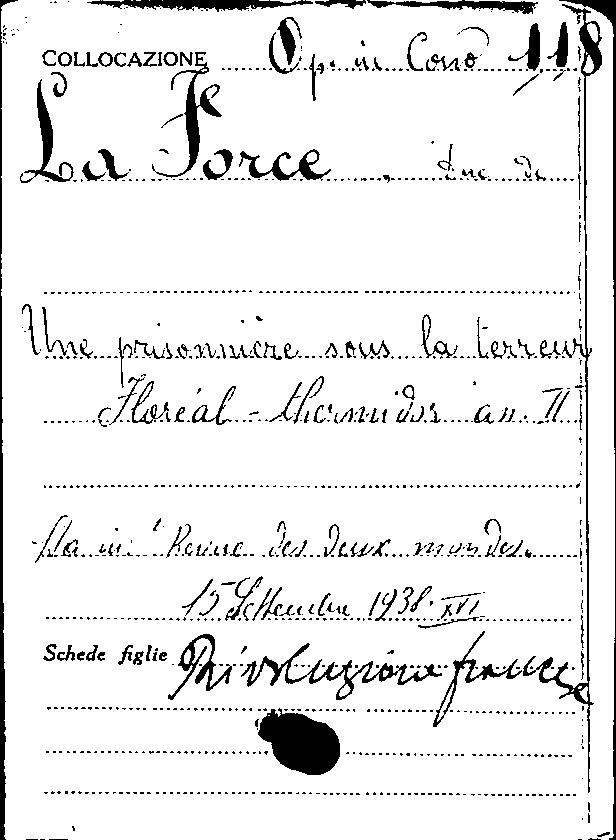 COLLOCAZIONE Op. in Corso 118
La Force, duc de
Une prisonnière sous la terreur
Floréal - thermidor an. II
Sta in: "Revue des deux mondes.
15 Settembre 1938. XVI
Schede figlie Rivoluzione francese